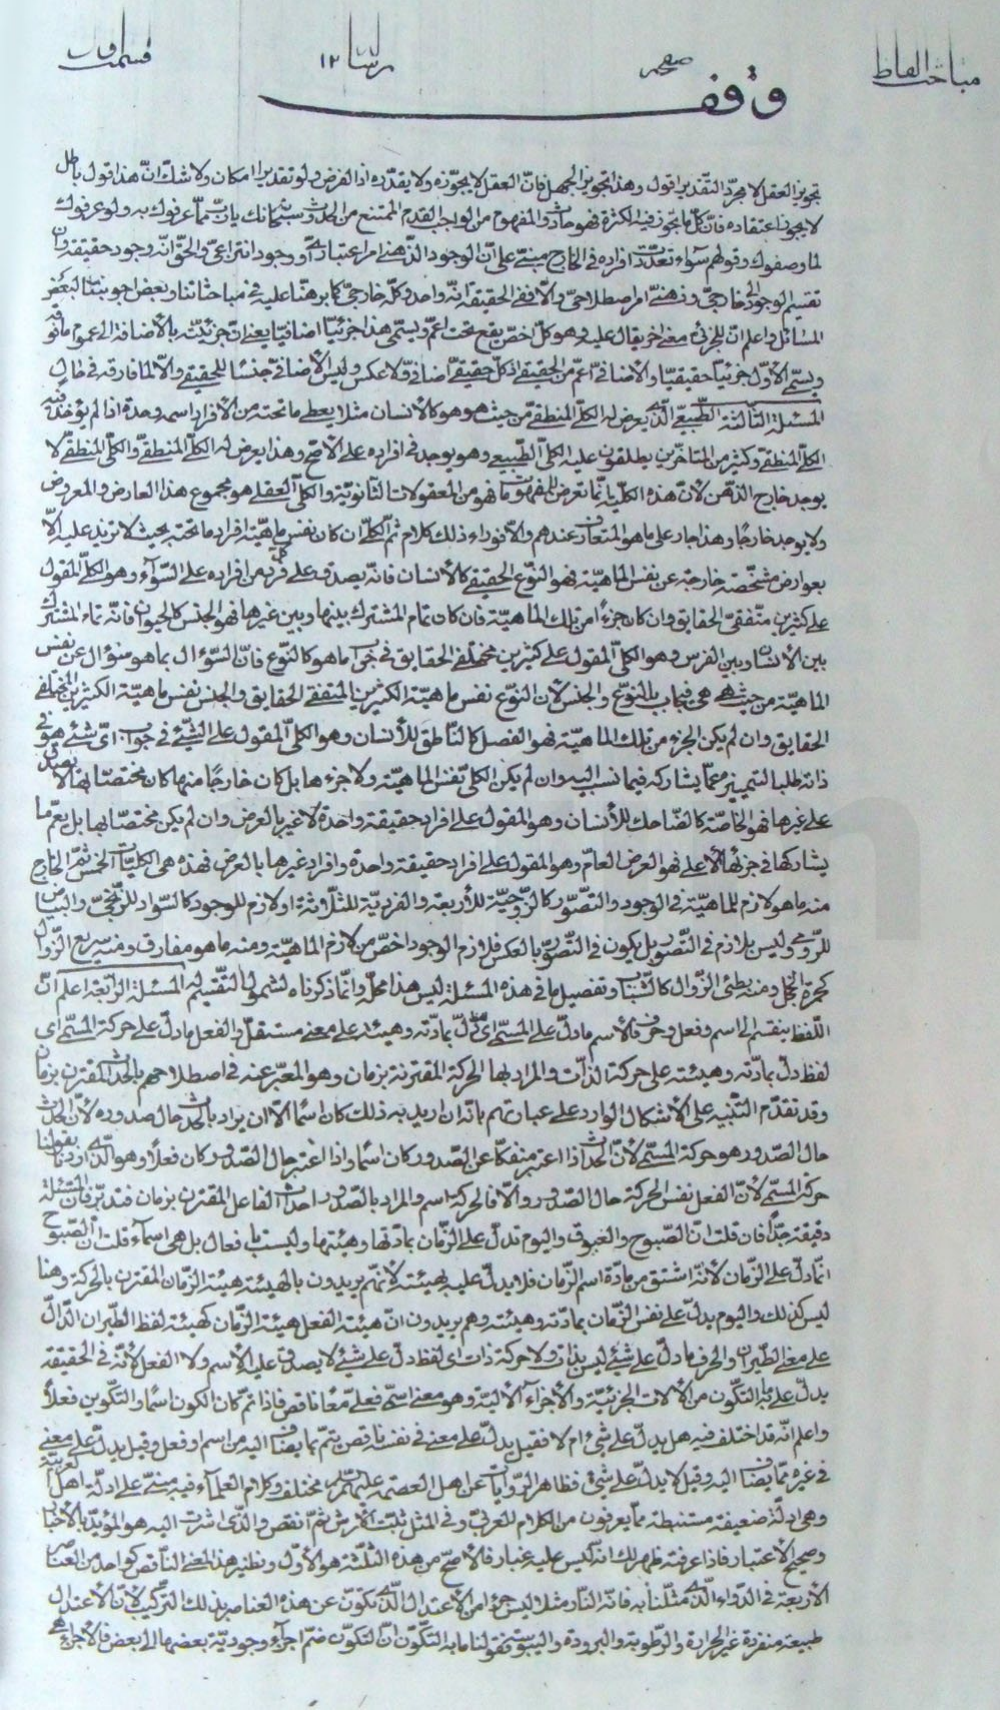 مباحث الفاظ
صفحه
رسالة ١٢
وقف
تجويز العقل لا مجرد التقدير اقول وهذا تجويز الجهل فانّ العقل لا يجوّزه ولا يقدّره اذ الفرض ولو تقديرا امكان ولا شك انّ هذا قول باطل
لا يجوز اعتقاده فانّ كل ما يجوز فيه الكثرة فهو حادث والمفهوم من الواجب القدم الممتنع من الحدوث سبحانك يا ربّ ما عرفوك به ولو عرفوك
لما وصفوك وقولهم سواء تعدّدت افراده في الخارج مبنيّ على انّ الوجود الذهني امر اعتباريّ او وجود انتزاعيّ والحق انّه وجود حقيقة وانّ
تقسيم الوجود الى خارجيّ وذهنيّ امر اصطلاحيّ والّا ففي الحقيقة انّه واحد وكلّه خارجيّ كما برهنّا عليه في مباحثاتنا وبعض اجوبتنا لبعض
المسائل واعلم انّ للجزئيّ معنى اخر يقال عليه وهو كلّ اخصّ يقع تحت اعمّ ويسمّى هذا جزئيّا اضافيّا يعني انّ جزئيّته بالأضافة الى عموم ما فوقه
ويسمّى الأوّل جزئيّا حقيقيّا والأضافيّ اعمّ من الحقيقيّ اذ كلّ حقيقيّ اضافيّ ولا عكس وليس الأضافيّ جنسًا للحقيقيّ والّا لما فارقه في حال
المسئلة الثالثة الطبيعيّ الّذي يعرض له الكلّيّ المنطقيّ من حيث هو هو كالأنسان مثلا يعطي ما تحته من الأفراد اسمه وحدّه اذا لم يؤخذ فيه
الكلّيّ المنطقيّ وكثير من المتأخّرين يطلقون عليه الكلّيّ الطبيعي وهو يوجد في افراده على الأصحّ وهذا يعرض له الكلّيّ المنطقيّ والكلّيّ المنطقيّ لا
يوجد خارج الذهن لأنّ هذه الكلّية انّما تعرض للمفهومات فهو من المعقولات الثانويّة والكلّيّ العقلي هو مجموع هذا العارض والمعروض
ولا يوجد خارجًا وهذا جار على ما هو المتعارف عندهم والّا فوراء ذلك كلام ثمّ الكلّيّ ان كان نفس ماهيّة افراد ما تحته بحيث لا تزيد عليه الّا
بعوارض مشخّصة خارجة عن نفس الماهيّة فهو النّوع الحقيقي كالأنسان فانّه يصدق على كل فرد من افراده على السّواء وهو الكلّيّ المقول
على كثيرين متّفقي الحقايق وان كان جزءًا من تلك الماهيّة فان كان تمام المشترك بينها وبين غيرها فهو الجنس كالحيوان فانّه تمام المشترك
بين الأنسان وبين الفرس وهو الكلّيّ المقول على كثيرين مختلفي الحقايق في جواب ما هو كالنّوع فانّ السّؤال بما هو سؤال عن نفس
الماهيّة من حيث هي هي فيجاب بالنّوع والجنس لأنّ النّوع نفس ماهيّة الكثيرين المتفقي الحقايق والجنس نفس ماهيّة الكثيرين المختلفي
الحقايق وان لم يكن الجزء من تلك الماهيّة فهو الفصل كالنّاطق للأنسان وهو الكلّيّ المقول على الشّيئ في جواب ايّ شيئ هو في
ذاته طلبا لتمييزه عمّا يشاركه فيما نسب اليه وان لم يكن الكلّيّ نفس الماهيّة ولا جزءها بل كان خارجًا منها كان مختصّا بها لا يصدق
على غيرها فهو الخاصّة كالضّاحك للأنسان وهو المقول على افراد حقيقة واحدة لا غير بالعرض وان لم يكن مختصّا بها بل يعمّ ما
يشاركها في جزئها الأعلى فهو العرض العامّ وهو المقول على افراد حقيقة واحدة وافراد غيرها بالعرض فهذه هي الكلّيّات الخمس ثمّ الخارج
منه ما هو لازم للماهيّة في الوجود والتصوّر كالزّوجيّة للأربعة والفرديّة للثلاثة او لازم للوجود كالسّواد للزّنجيّ والبياض
للرّوميّ وليس بلازم في التّصور بل يكون في التّصوّر بالعكس فلازم الوجود اخصّ من لازم الماهيّة ومنه ما هو مفارق ومنه سريع الزّوال
كحمرة الخجل ومنه بطئ الزّوال كالشّباب وتفصيل ما في هذه المسئلة ليس هذا محلّه وانّما ذكرناه لشمول التقسيم له المسئلة الرّابعة اعلم انّ
اللّفظ ينقسم الى اسم وفعل وحرف فالأسم ما دلّ على المسمّى اي ما دلّ بمادّته وهيئته على معنى مستقلّ والفعل ما دلّ على حركة المسمّى اي
لفظ دلّ بمادّته وهيئته على حركة الذّات والمراد بها الحركة المقترنة بزمان وهو المعبّر عنه في اصطلاحهم بالحدث المقترن بزمان
وقد تقدّم التّنبيه على الأشكال الوارد على عبارتهم بانّه ان اريد به ذلك كان اسمًا الّا ان يراد بالحدث حال صدوره لأنّ الحدث
حال الصّدور هو حركة المسمّى لأنّ الحدث اذا اعتبر منفكًا عن الصّدور كان اسمًا واذا اعتبر حال الصّدور كان فعلًا وهو الّذي اردنا بقولنا
حركة المسمّى لأنّ الفعل نفس الحركة حال الصّدور والّا فالحركة اسم والمراد بالصّدور احداث الفاعل المقترن بزمان فتدبّر فانّ المسئلة
دقيقة جدًّا فان قلت انّ الصّبوح والغبوق واليوم تدلّ على الزّمان بمادّتها وهيئتها وليست بافعال بل هي اسماء قلت انّ الصّبوح
انّما دلّ على الزّمان لأنّه اشتق من مادّة اسم الزّمان فلا يدلّ عليه بهيئته لأنّهم يريدون بالهيئة هيئة الزّمان المقترن بالحركة وهنا
ليس كذلك واليوم يدلّ على نفس الزّمان بمادّته وهيئته وهم يريدون انّ هيئة الفعل هيئة الزّمان كهيئة لفظ الطّيران الدّالّ
على معنى الطّيران والحرف ما دلّ على شيئ ليس بذات ولا حركة ذات اي لفظ دلّ على شيئ لا يصدق عليه الأسم ولا الفعل لأنّه في الحقيقة
يدلّ على ما به التكوّن من الألات الجزئيّة والأجزاء الأليّة وهو معنى اسمي فعليّ معًا ناقص فاذا تمّ كان الكون اسمًا والتكوين فعلًا
واعلم انّه قد اختلف فيه هل يدلّ على شيء ام لا فقيل يدلّ على معنى في نفسه ناقص يتمّ بما يضاف اليه من اسم او فعل وقيل يدلّ على معنى
في غيره ممّا يضاف اليه وقيل لا يدلّ على شيئ فظاهر الرّوايات عن اهل العصمة عليهم السّلام مختلف وكلام العلماء فيه مبنيّ على ادلّة اهل العربيّة
وهي ادلّة ضعيفة مستنبطة ممّا يعرفون من الكلام للعربيّ وفي المثل ثبّت العرش ثمّ انقش والّذي اشرت اليه هو المؤيّد بالأخبار
وصحيح الأعتبار فاذا عرفته ظهر لك انّه ليس عليه غبار فالأصحّ من هذه الثّلثة هو الأوّل ونظير هذا المعنى النّاقص كواحد من العناصر
الأربعة في الدّواء الّذي مثّلنا به فانّه النّار مثلا ليس جزءًا من الأعتدال الّذي تكوّن عن هذه العناصر بذلك التركيب لأنّ الأعتدال
طبيعة منفردة غير الحرارة والرّطوبة والبرودة واليبوسة فقولنا ما به التكوّن انّ التكوّن ضمّ اجزاء وجوديّة بعضها الى بعض فالأجزاء هي